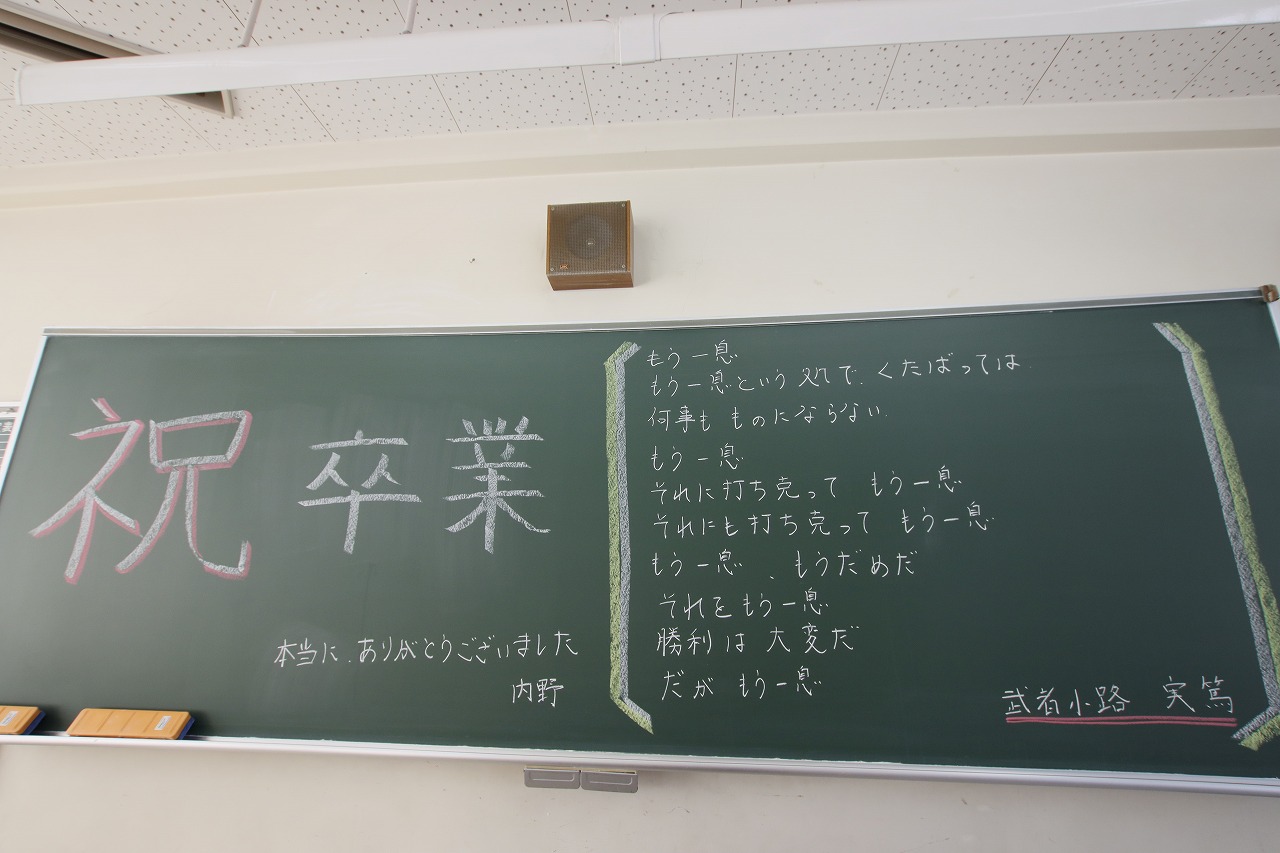 祝 卒業
本当に、ありがとうございました
内野
もう一息
もう一息という処で、くたばっては
何事も ものにならない。
もう一息
それに打ち克って もう一息
それにも打ち克って もう一息
もう一息 、もうだめだ
それをもう一息
勝利は 大変だ
だが もう一息
武者小路 実篤